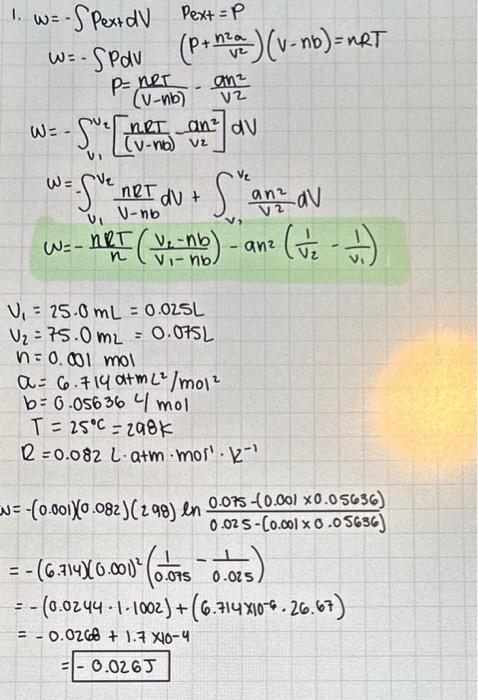 1. w = -∫Pext dV Pext = P
w = -∫PdV (P + n²a/V²)(V-nb) = nRT
P = nRT/(V-nb) - an²/V²
w = -∫V₁^V₂ [nRT/(V-nb) - an²/V²] dV
w = -∫V₁^V₂ nRT/V-nb dV + ∫V₁^V₂ an²/V² dV
w = - nRT/n (V₂-nb/V₁-nb) - an² (1/V₂ - 1/V₁)
V₁ = 25.0 mL = 0.025L
V₂ = 75.0 mL = 0.075L
n = 0.001 mol
a = 6.714 atm L²/mol²
b = 0.05636 L/mol
T = 25°C = 298K
R = 0.082 L·atm·mol⁻¹·K⁻¹
w = -(0.001)(0.082)(298) ln 0.075-(0.001 x 0.05636)/0.025-(0.001 x 0.05636)
= -(6.714)(0.001)² (1/0.075 - 1/0.025)
= -(0.0244 · 1.1002) + (6.714 x10⁻⁶ · 26.67)
= -0.0268 + 1.7 x10-4
= -0.026J